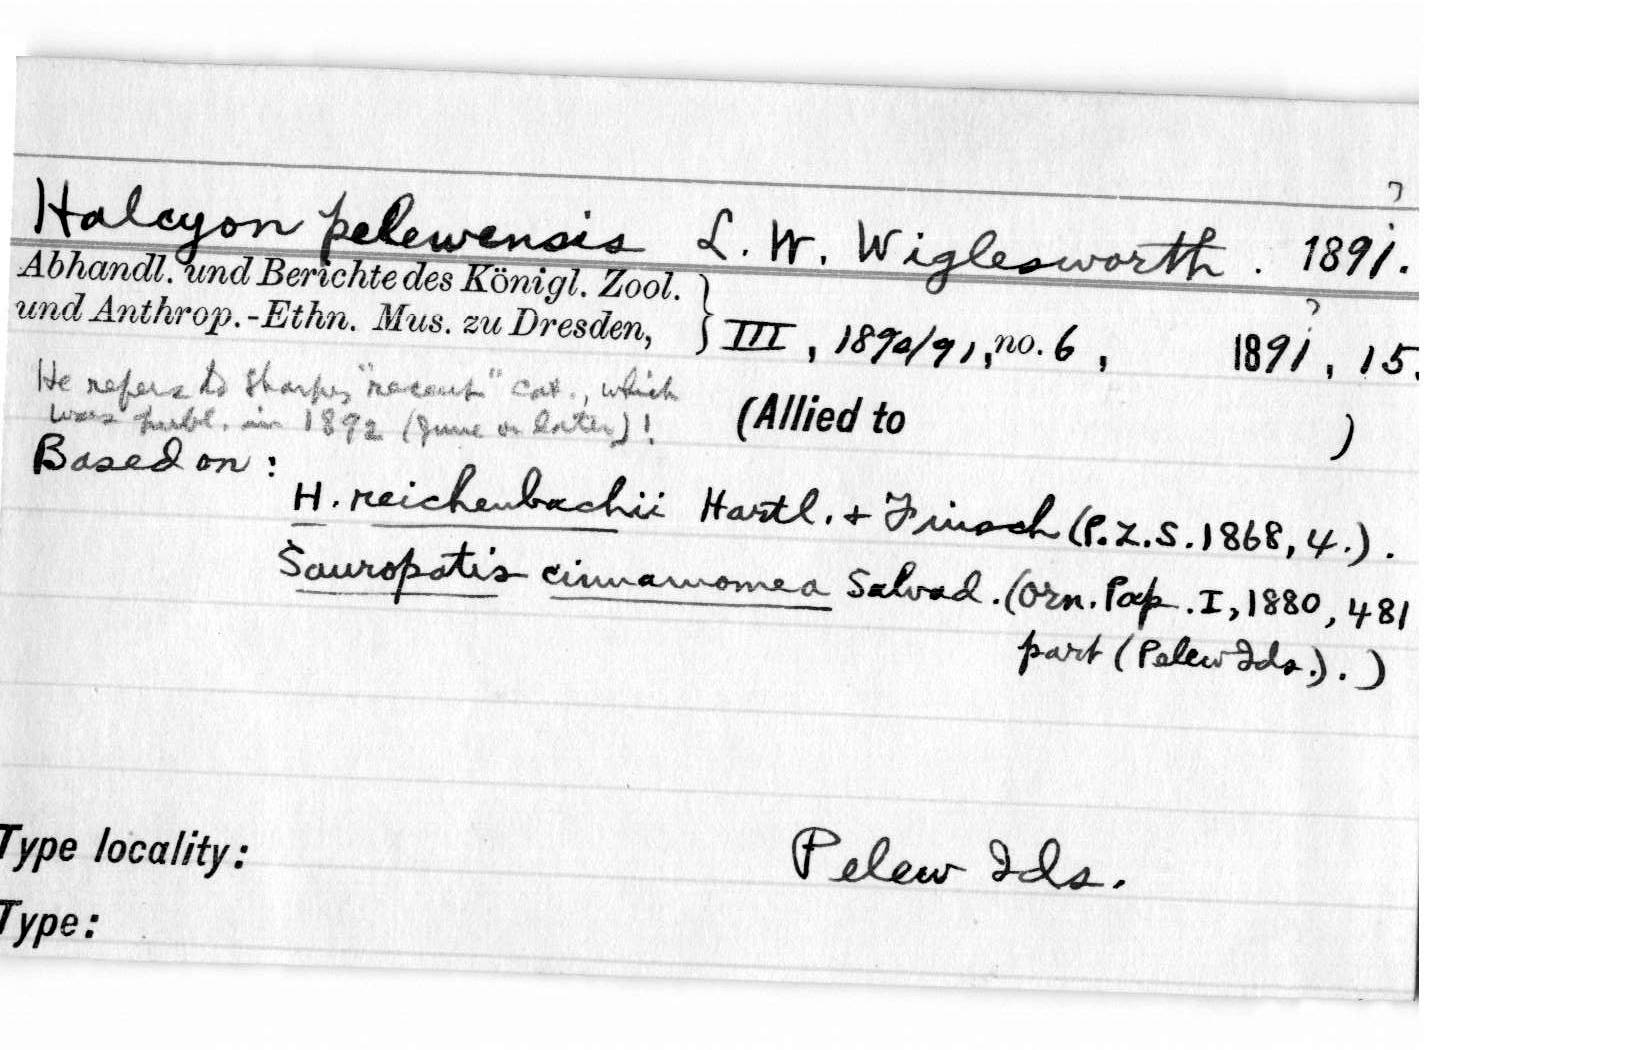 ?
Halcyon pelewensis L. W. Wiglesworth. 1891.
Abhandl. und Berichte des Königl. Zool.
und Anthrop.-Ethn. Mus. zu Dresden, } III, 1890/91, no. 6, 1891?, 15.
He refers to Sharpe's "recent" cat., which
was publ. in 1892 (June or later)!
(Allied to )
Based on:
H. reichenbachii Hartl. + Finsch (P.Z.S. 1868, 4.).
Sauropatis cinnamomea Salvad. (Orn. Pap. I, 1880, 481
part (Pelew Ids.).)
Type locality: Pelew Ids.
Type: